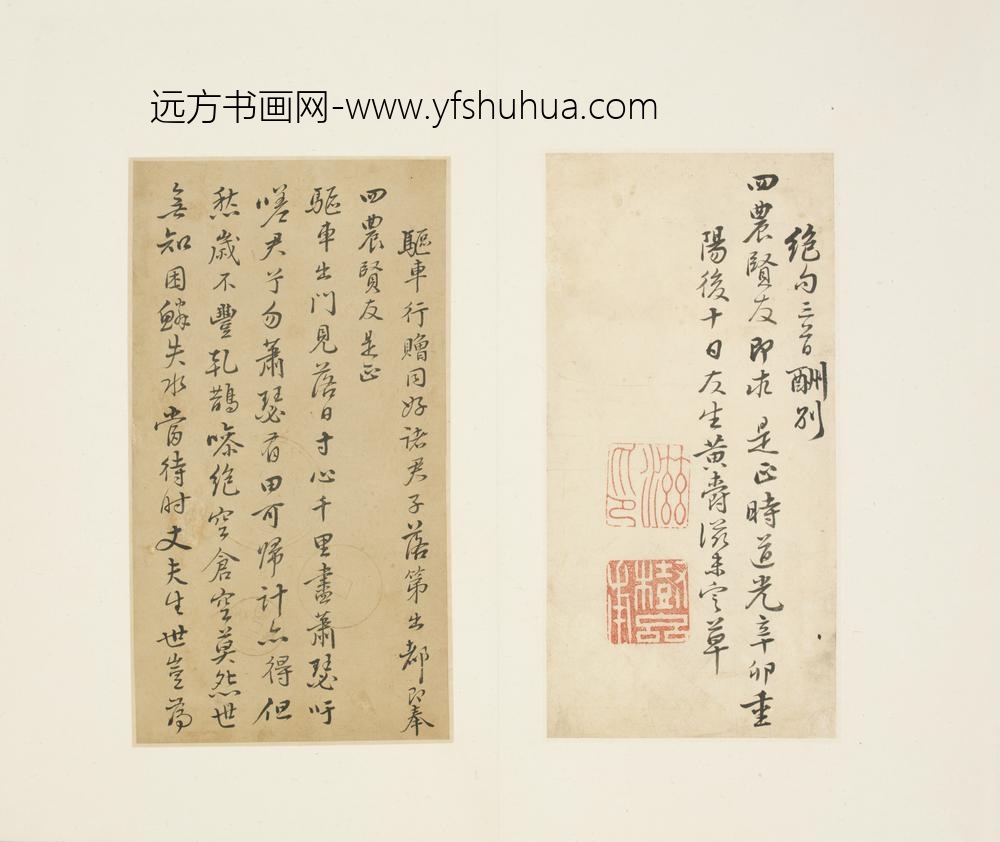 远方书画网-www.yfshuhua.com
绝句三首酬别
四農賢友即求是正時道光辛卯重
陽後十日友生黃爵滋未定草
驅車行贈同好諸君子落第出都即奉
四農賢友是正
驅車出門見落日寸心千里盡蕭瑟吁
嗟君兮勿蕭瑟有田可歸計亦得但
愁歲不豐乾鵲噪絕空倉空莫怨世
無知困鱗失水當待时丈夫生世豈為